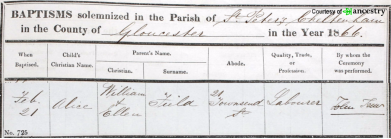 Courtesy of ancestry
BAPTISMS solemnized in the Parish of St. Peter's, Cheltenham
in the County of Gloucester in the Year 1866.
When Baptised.
Child's Christian Name.
Parent's Name.
Christian.
Surname.
Abode.
Quality, Trade, or Profession.
By whom the Ceremony was performed.
Feb. 21
Alice
William & Ellen
Feild
21 Townsend St
Labourer
No. 725